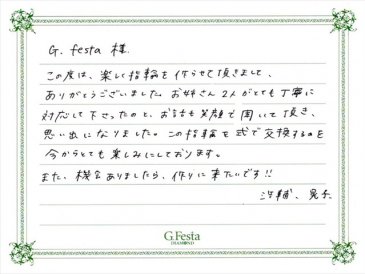 G. festa 様.
この度は、楽しく指輪を作らせて頂きまして、
ありがとうございました。お姉さん2人がとても丁寧に
対応して下さったのと、お話も笑顔で聞いて頂き、
思い出になりました。この指輪を式で交換するのを
今からとても楽しみにしております。
また、機会ありましたら、作りに来たいです!!
晃子
G.Festa
DIAMOND